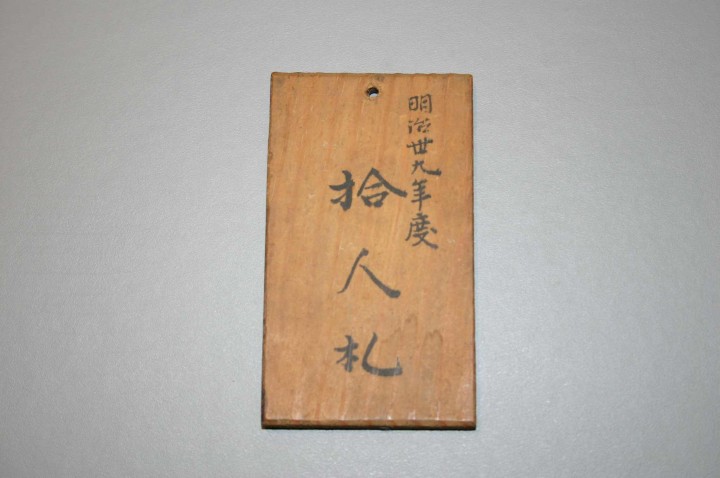 明治丗九年度
拾人札